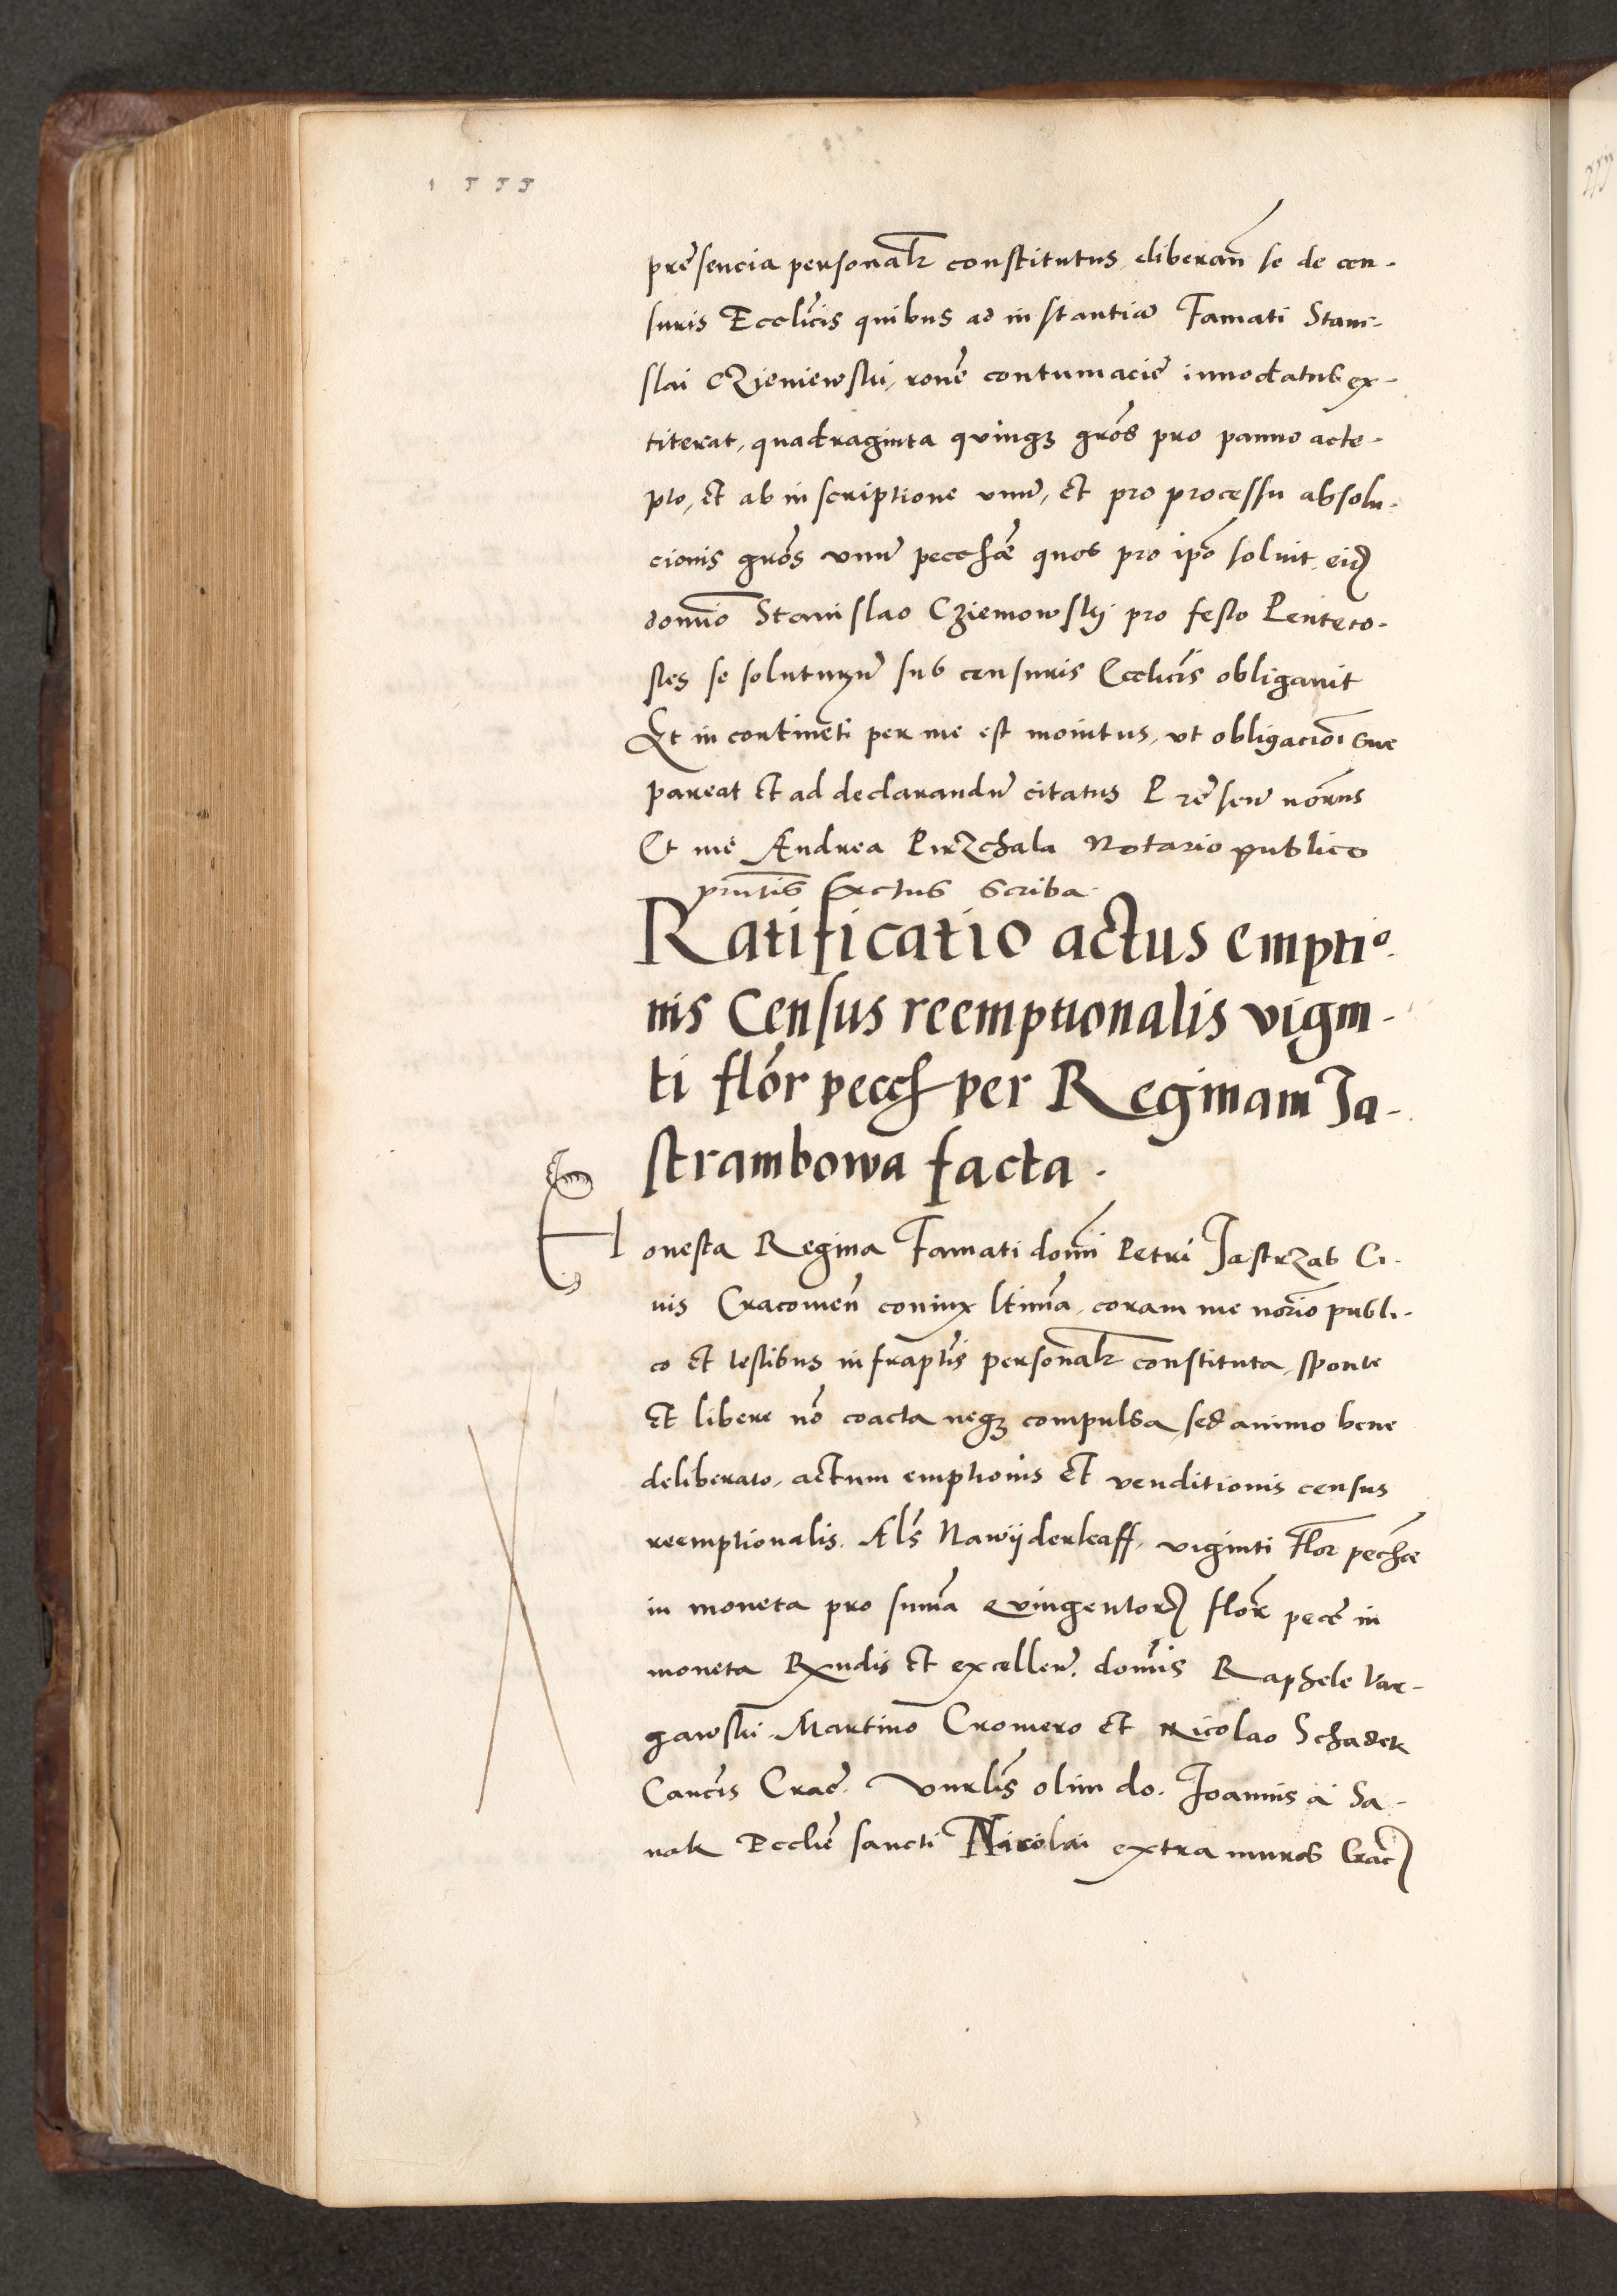 1555
presencia personalr constitutus, eliberan se de cen-
suris Ecclicis quibus ad instantia Famati Stani-
slai CZieniewski, rone contumacie innodatus ex-
titerat, quadraginta quinqz gros pro panno acce-
pto, et ab inscriptione unu, et pro processu absolu-
cionis gros unu pecche quos pro ipo solvit eid
domino Stanislao Cziemowskij pro festo Penteco-
stes se soluturu sub censuris Ecclicis obligavit
Et in contineti per me est monitus, vt obligacioi sue
pareat et ad declarandu citatus Presen norus
Et me Andrea Pirzchala Notario publico
pntis Actus scriba.
Ratificatio actus emptio.
nis Census reemptionalis vigin-
ti flor pecch per Reginam Ja-
strambowa facta.
Honesta Regina Famati domi Petri Jastrzab Ci-
uis Cracouien coniux ltima, coram me norio publi-
co et testibus infraptis personalr constituta, sponte
et libere no coacta neqz compulsa, sed animo bene
deliberato, actum emptionis et venditionis census
reemptionalis. Als Nawijderkaff, viginti flor peche
in moneta pro suma quingentor flor pece in
moneta Rndis et excellen. domis Raphele Var-
gawski. Martino Cromero et Nicolao Schadek
Cancis Crac. olim do. Joannis a Sa-
nok Ecclie sancti Nicolai extra muros Crac